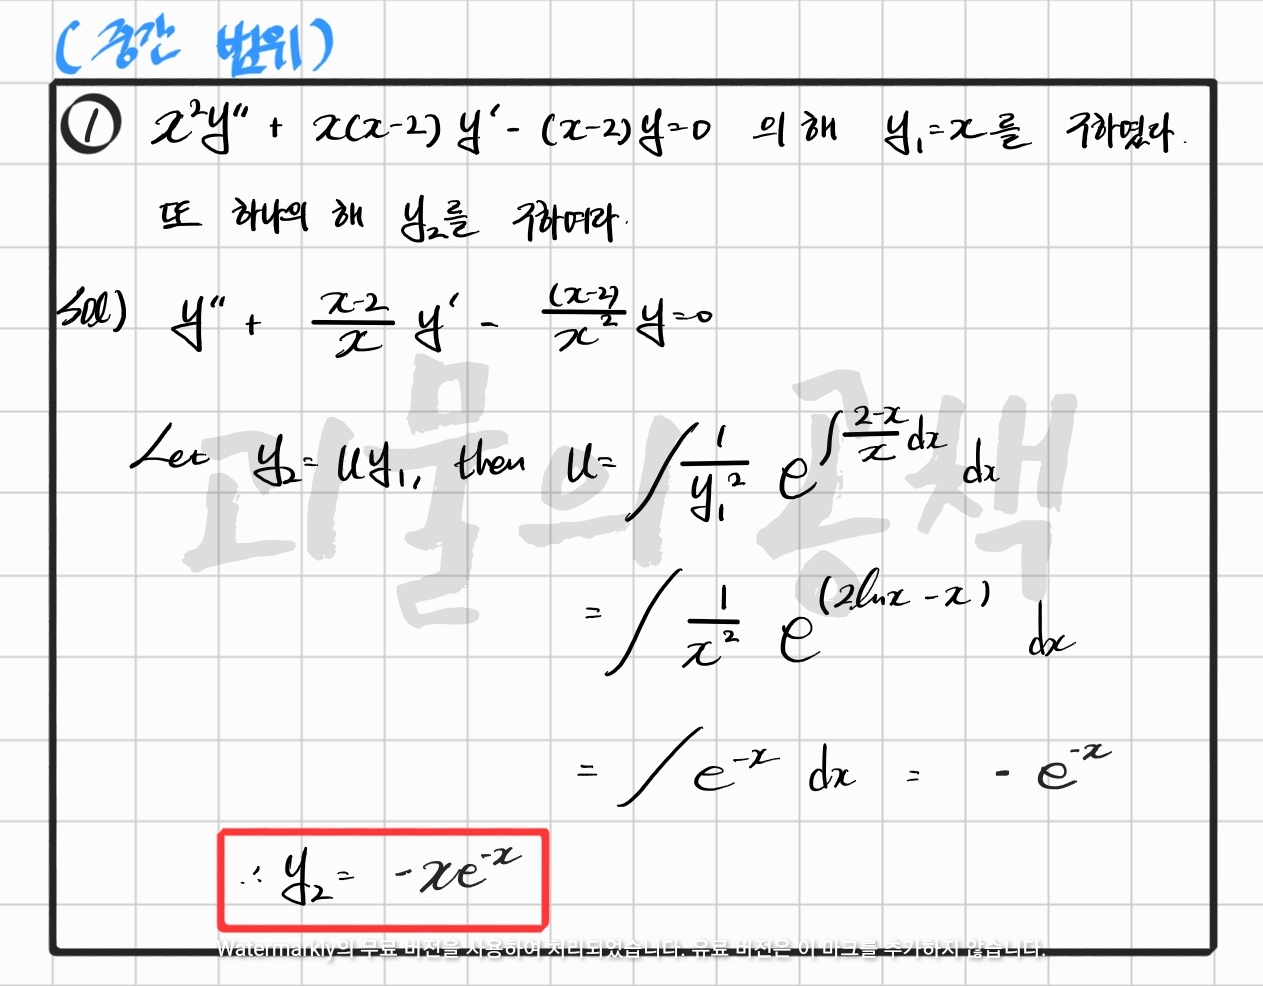 (중간 범위)
① x²y″ + x(x-2) y′ - (x-2)y=0 의 해 y₁=x를 구하였다.
또 하나의 해 y₂를 구하여라.
Sol) y″ + \frac{x-2}{x} y′ - \frac{(x-2)}{x²} y=0
Let y₂ = uy₁, then u = ∫ \frac{1}{y₁²} e^{∫\frac{2-x}{x}dx} dx
= ∫ \frac{1}{x²} e^{(2lnx - x)} dx
= ∫ e^{-x} dx = - e^{-x}
∴ y₂ = -xe^{-x}
괴물의 공책
Watermarkly의 무료 버전을 사용하여 처리되었습니다. 유료 버전은 이 마크를 추가하지 않습니다.